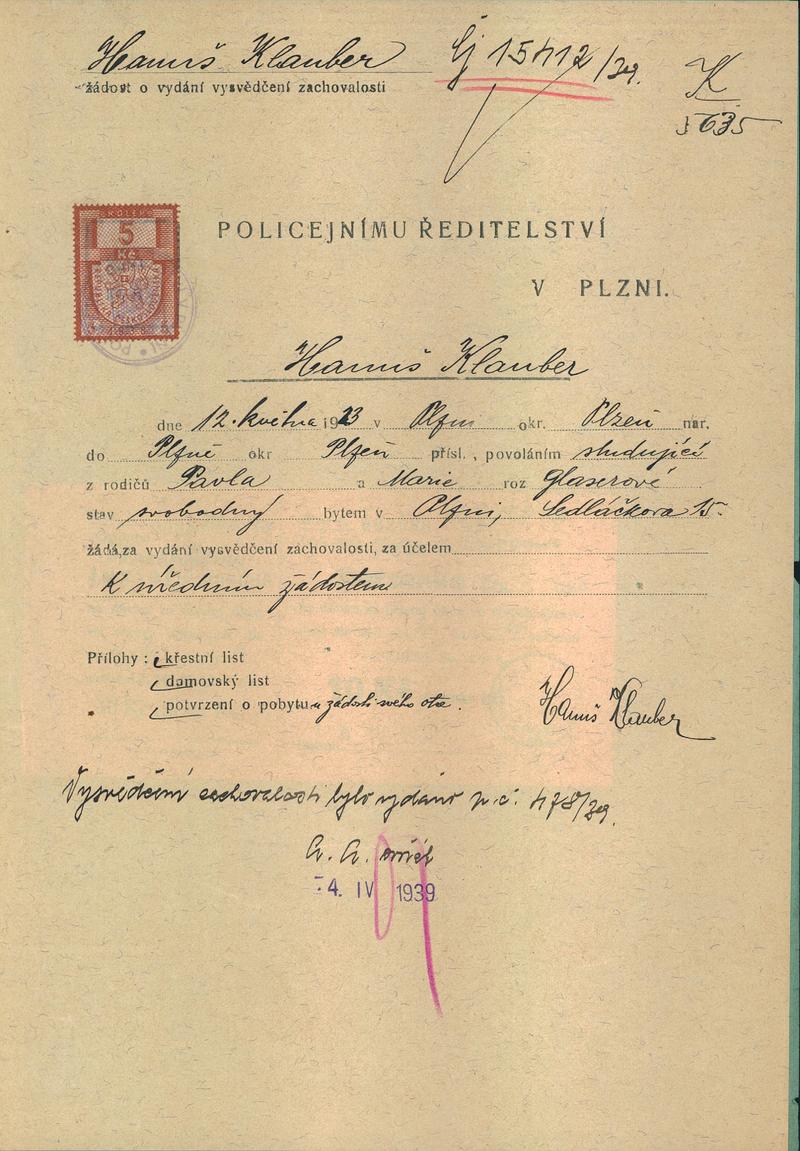 Hanuš Klauber
Čj 15412/39.
žádost o vydání vysvědčení zachovalosti
K
5635
KOLEK
5
Kč
POLICEJNÍMU ŘEDITELSTVÍ
V PLZNI.
Hanuš Klauber
dne 12. května 1923 v Plzni okr. Plzeň nar.
do Plzně okr Plzeň přísl., povoláním studující
z rodičů Pavla a Marie roz Glaserové
stav svobodný bytem v Plzni, Sedláčkova 15.
žádá,za vydání vysvědčení zachovalosti, za účelem
K úředním žádostem
Přílohy : křestní list
damovský list
potvrzení o pobytu u žádosti svého otce.
Hanuš Klauber
Vysvědčení zachovalosti bylo vydáno p. č. 478/39.
A. A.
4. IV 1939